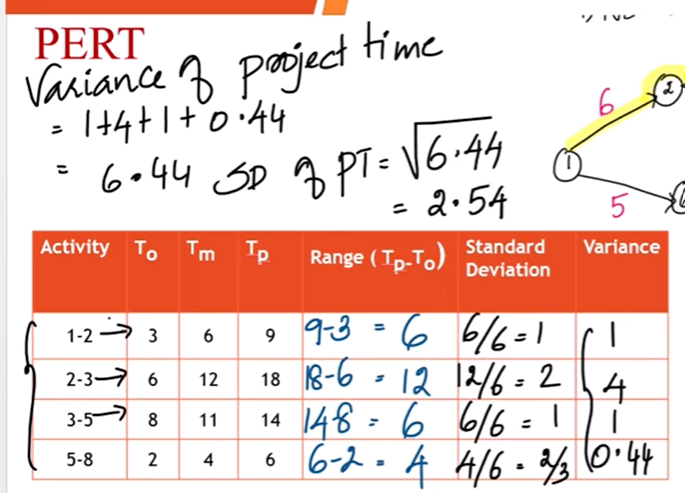 PERT
Variance of project time
= 1+4+1+0.44
= 6.44 SD of PT = √6.44
= 2.54
6
2
1
5
Activity To Tm Tp Range (Tp-To) Standard Deviation Variance
1-2 → 3 6 9 9-3 = 6 6/6 = 1 1
2-3 → 6 12 18 18-6 = 12 12/6 = 2 4
3-5 → 8 11 14 14-8 = 6 6/6 = 1 1
5-8 2 4 6 6-2 = 4 4/6 = 2/3 0.44